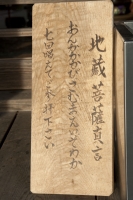 地蔵菩薩真言
おんかかかびさんまえいそわか
七回唱えて参拝下さい